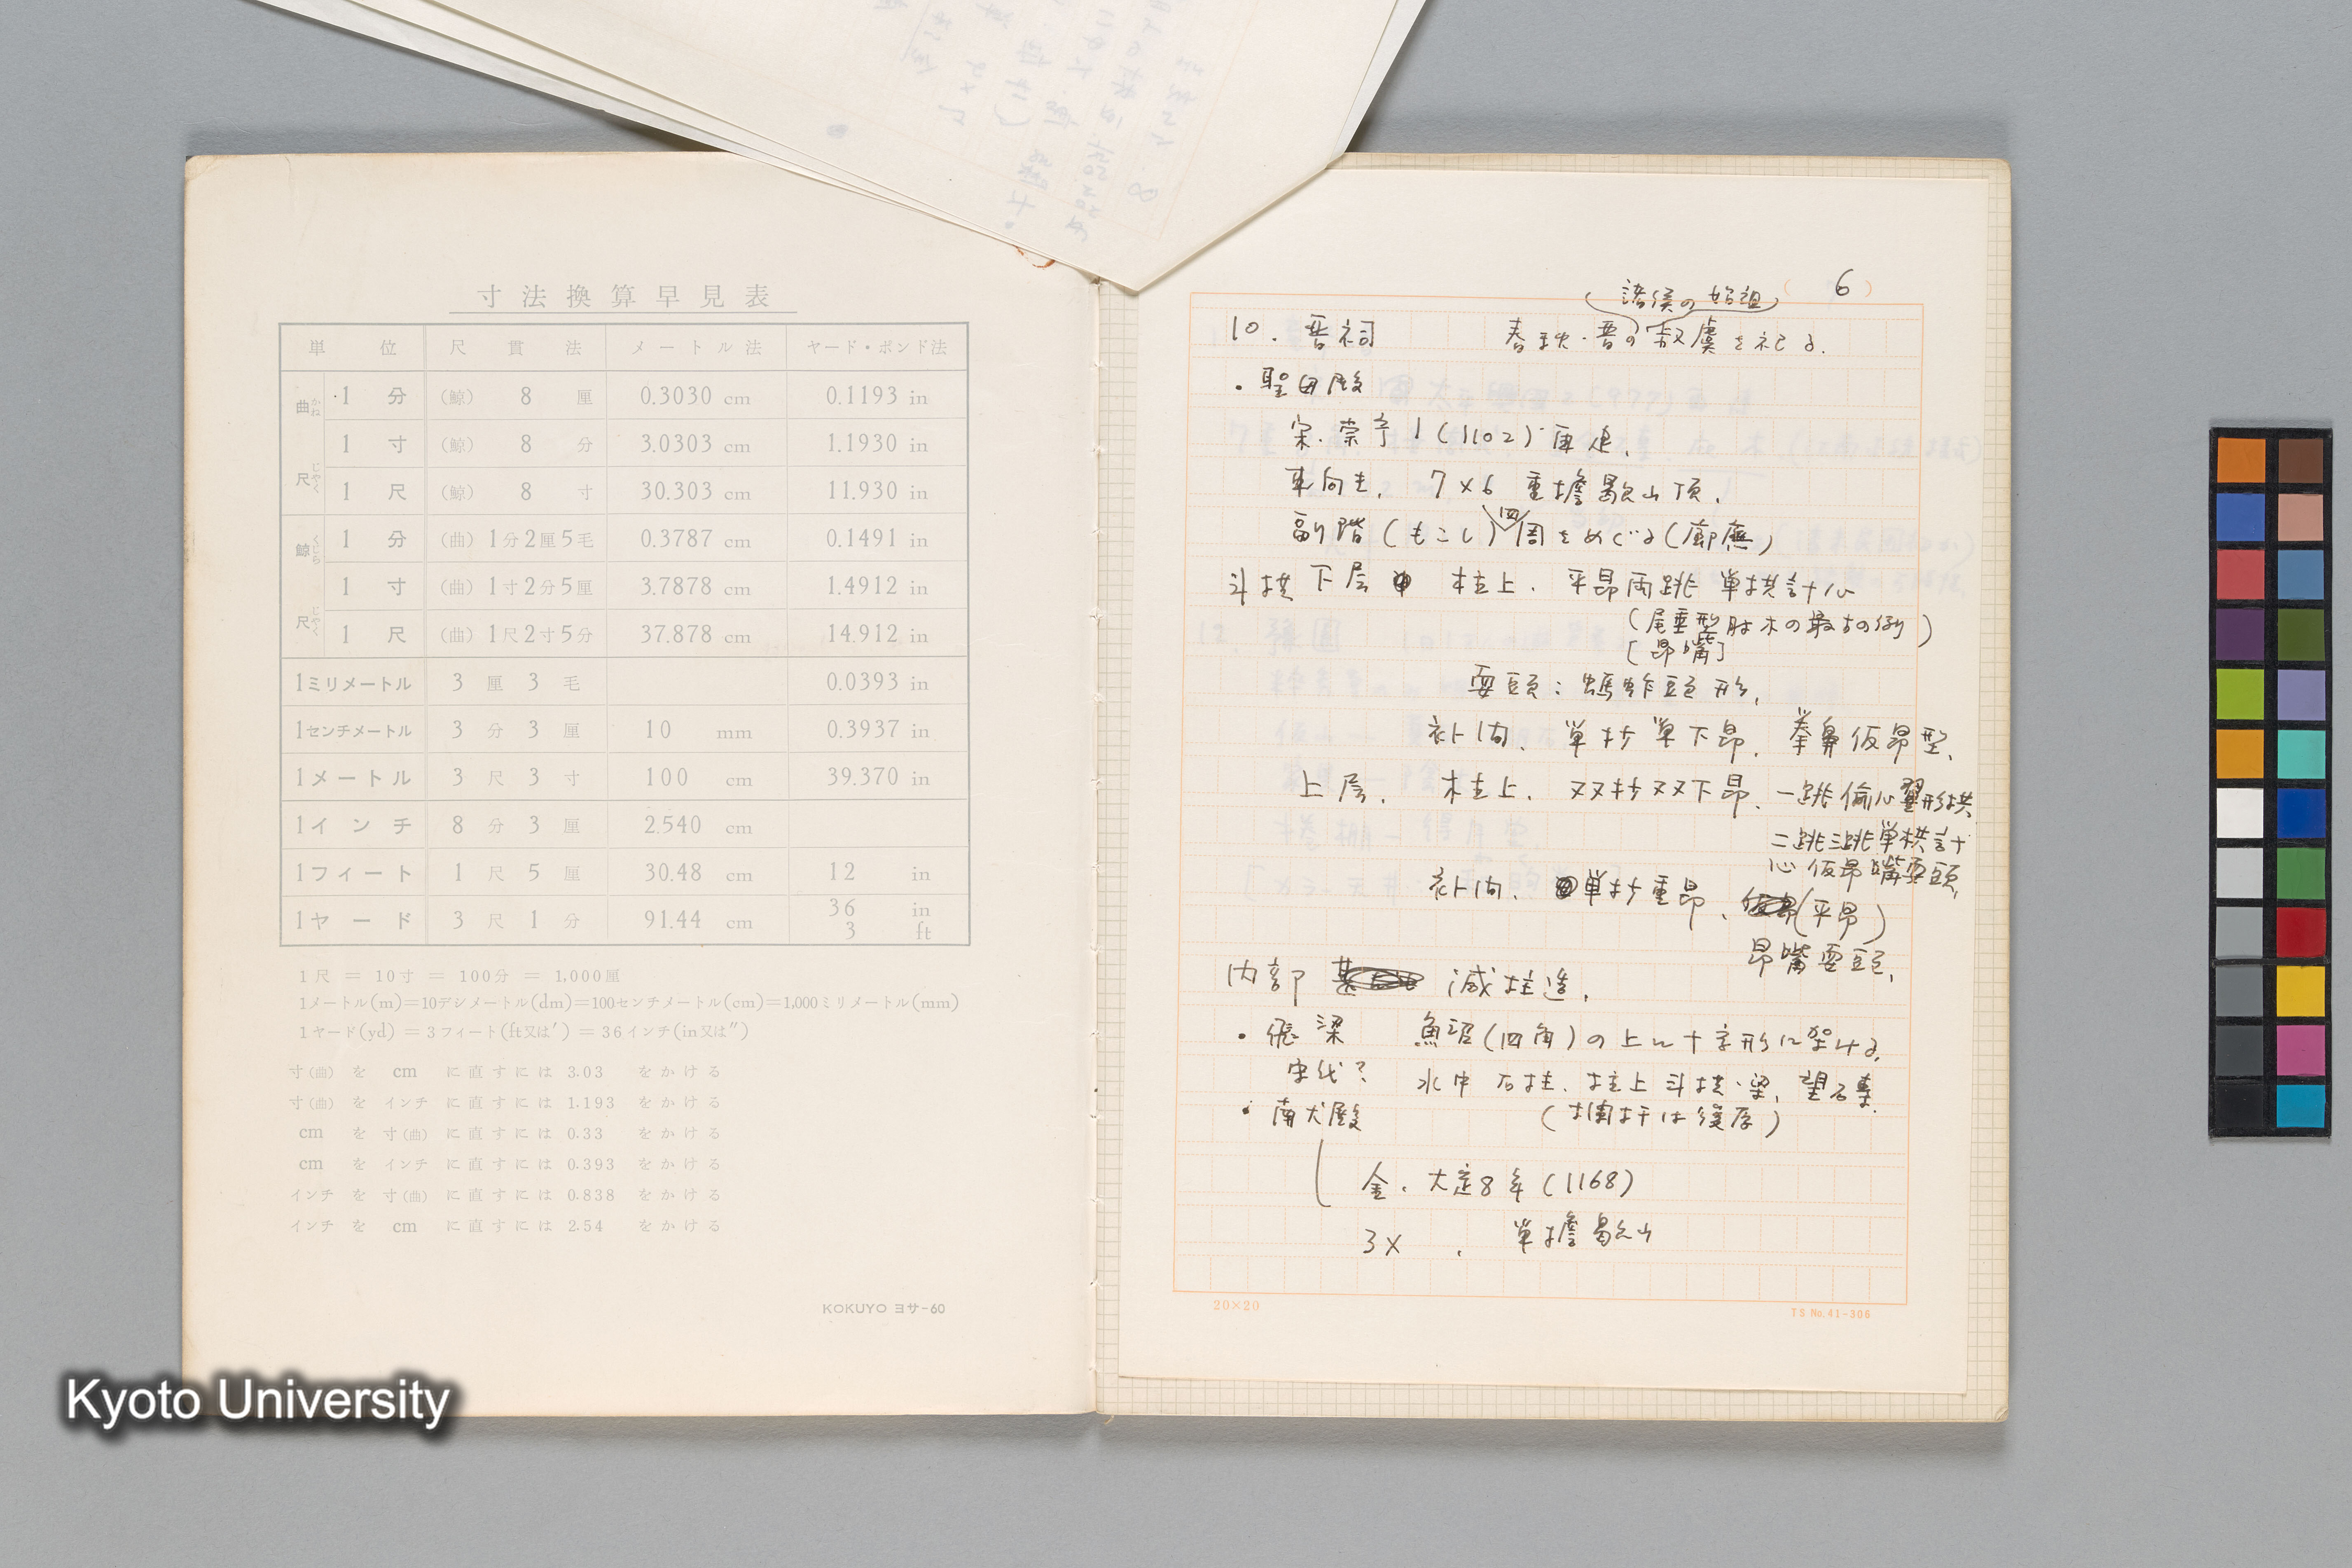 寸法換算早見表
単位 尺貫法 メートル法 ヤード・ポンド法
曲尺 かねじゃく
1分 (鯨) 8厘 0.3030 cm 0.1193 in
1寸 (鯨) 8分 3.0303 cm 1.1930 in
1尺 (鯨) 8寸 30.303 cm 11.930 in
鯨尺 くじらじゃく
1分 (曲) 1分2厘5毛 0.3787 cm 0.1491 in
1寸 (曲) 1寸2分5厘 3.7878 cm 1.4912 in
1尺 (曲) 1尺2寸5分 37.878 cm 14.912 in
1ミリメートル 3厘3毛 0.0393 in
1センチメートル 3分3厘 10 mm 0.3937 in
1メートル 3尺3寸 100 cm 39.370 in
1インチ 8分3厘 2.540 cm
1フィート 1尺5厘 30.48 cm 12 in
1ヤード 3尺1分 91.44 cm 36 in 3 ft
1尺=10寸=100分=1,000厘
1メートル(m)=10デシメートル(dm)=100センチメートル(cm)=1,000ミリメートル(mm)
1ヤード(yd)=3フィート(ft又は′)=36インチ(in又は″)
寸(曲)を cm に直すには 3.03 をかける
寸(曲)を インチ に直すには 1.193 をかける
cm を 寸(曲) に直すには 0.33 をかける
cm を インチ に直すには 0.393 をかける
インチ を 寸(曲) に直すには 0.838 をかける
インチ を cm に直すには 2.54 をかける
KOKUYO ヨサ-60
( 6 )
諸侯の始祖
10. 晋祠 春秋・晋の叔虞を祀る.
・聖母殿
宋.崇寧1(1102)重建.
東向き. 7×6 重擔歇山頂.
副階(もこし)四周をめぐる(廊廡)
斗拱 下层 柱上. 平昂両跳 単拱計心
(尾垂型肘木の最古の例)
[昂嘴]
耍頭:螞蚱頭形.
補間. 単抄単下昂. 拳鼻仮昂型.
上层. 柱上. 双抄双下昂. 一跳偸心翼形拱
二跳三跳単栱計
心 仮昂嘴耍頭.
補間. 単抄重昂. (平昂)
昂嘴耍頭.
内部 減柱造.
・飛梁 魚沼(四角)の上に十字形に架ける.
宋代? 水中 石柱. 柱上 斗拱・梁.
・献殿 (欄杆は後存)
金.大定8年(1168)
3× . 単擔歇山
20×20
TS No.41-306
Kyoto University